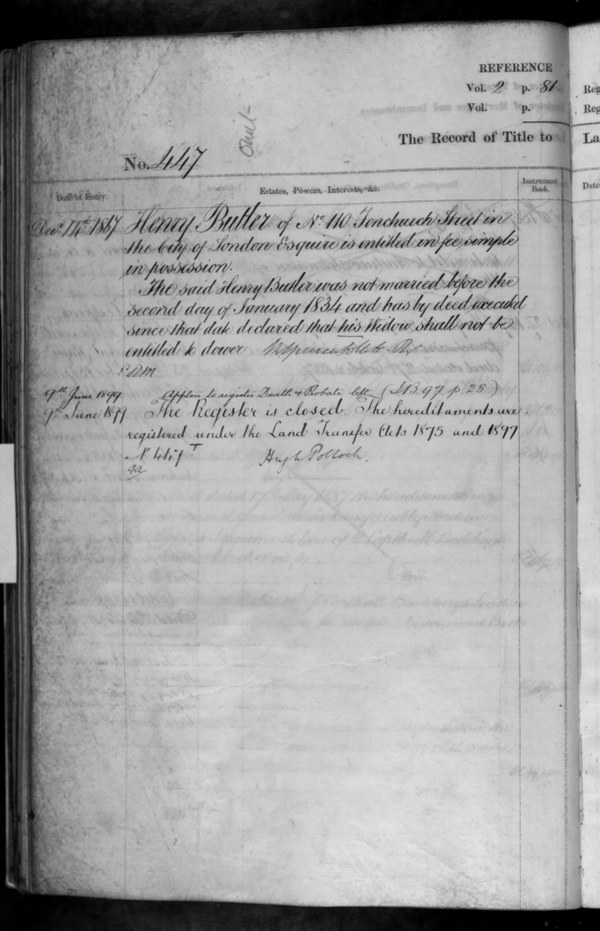 REFERENCE
Vol. 2 p. 81
Vol. p.
The Record of Title to
No. 447
Date of Entry.
Estates, Powers, Interests, &c.
Instrument Book.
Decr. 14th. 1867 Henry Butler of No. 110 Fenchurch Street in
the City of London Esquire is entitled in fee simple
in possession.
The said Henry Butler was not married before the
second day of January 1834 and has by deed executed
since that date declared that his Widow shall not be
entitled to dower
9th June 1899 Appln to register Death & Probate (I B 97 p 28)
9th June 1899 The Register is closed. The hereditaments are
registered under the Land Transfer Acts 1875 and 1897
Hugh Pollock.
Reg
Reg
La
Date